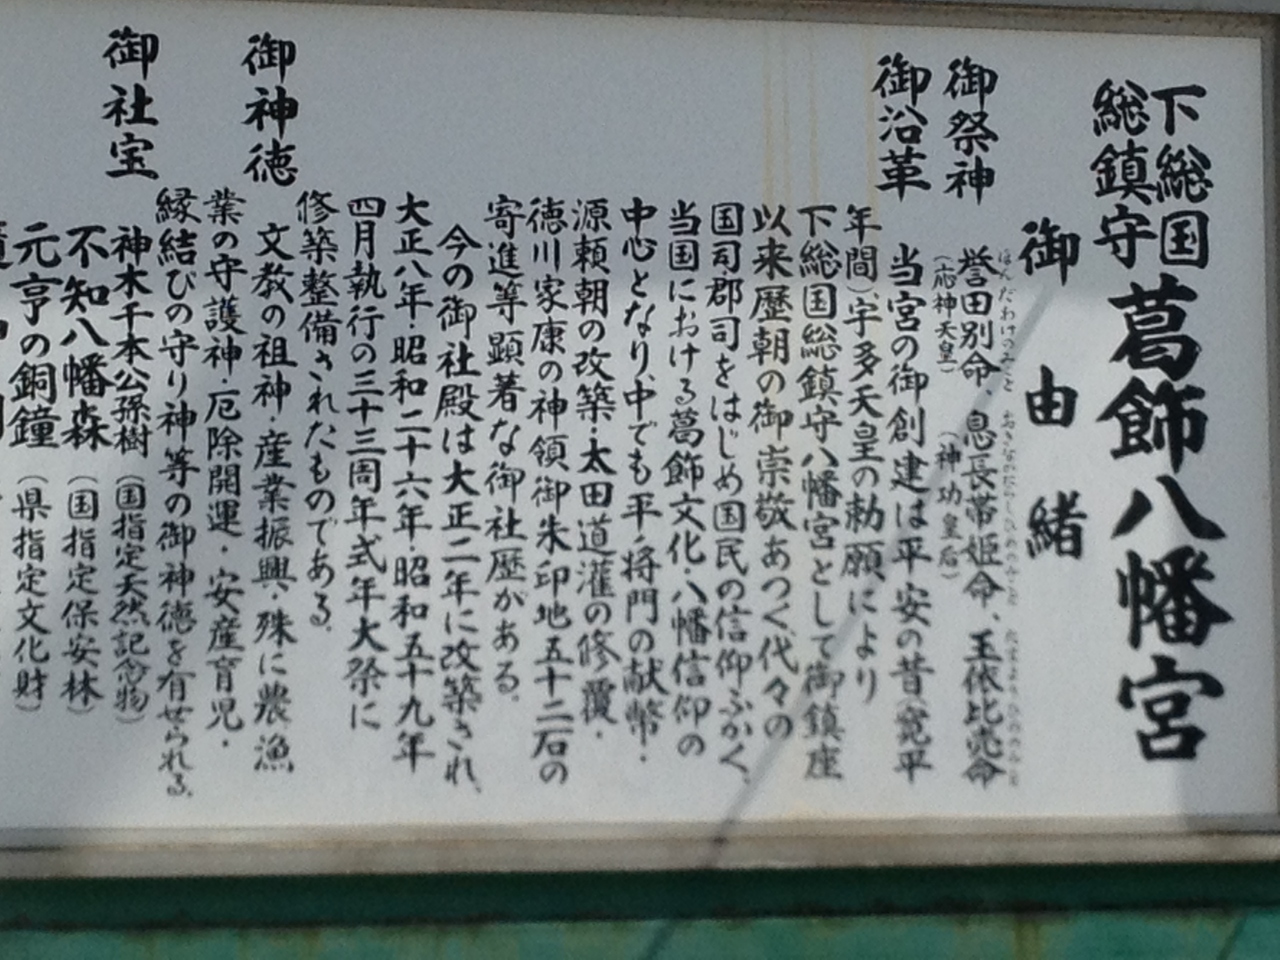 下総国
総鎮守
葛飾八幡宮
御由緒
御祭神
ほんだわけのみこと おきながたらしひめのみこと たまよりひめのみこと
誉田別命、息長帯姫命、玉依比売命
(応神天皇) (神功皇后)
御沿革
当宮の御創建は平安の昔(寛平
年間)、宇多天皇の勅願により
下総国総鎮守八幡宮として御鎮座
以来歴朝の御崇敬あつく、代々の
国司・郡司をはじめ国民の信仰ふかく、
当国における葛飾文化・八幡信仰の
中心となり、中でも平・将門の献幣・
源頼朝の改築・太田道灌の修覆・
徳川家康の神領御朱印地五十二石の
寄進等顕著な御社歴がある。
今の御社殿は大正二年に改築され、
大正八年・昭和二十六年・昭和五十九年
四月執行の三十三周年式年大祭に
修築整備されたものである。
御神徳
文教の祖神・産業振興・殊に農漁
業の守護神・厄除開運・安産育児・
縁結びの守り神等の御神徳を有せられる。
御社宝
神木千本公孫樹(国指定天然記念物)
不知八幡森(国指定保安林)
元亨の銅鐘(県指定文化財)